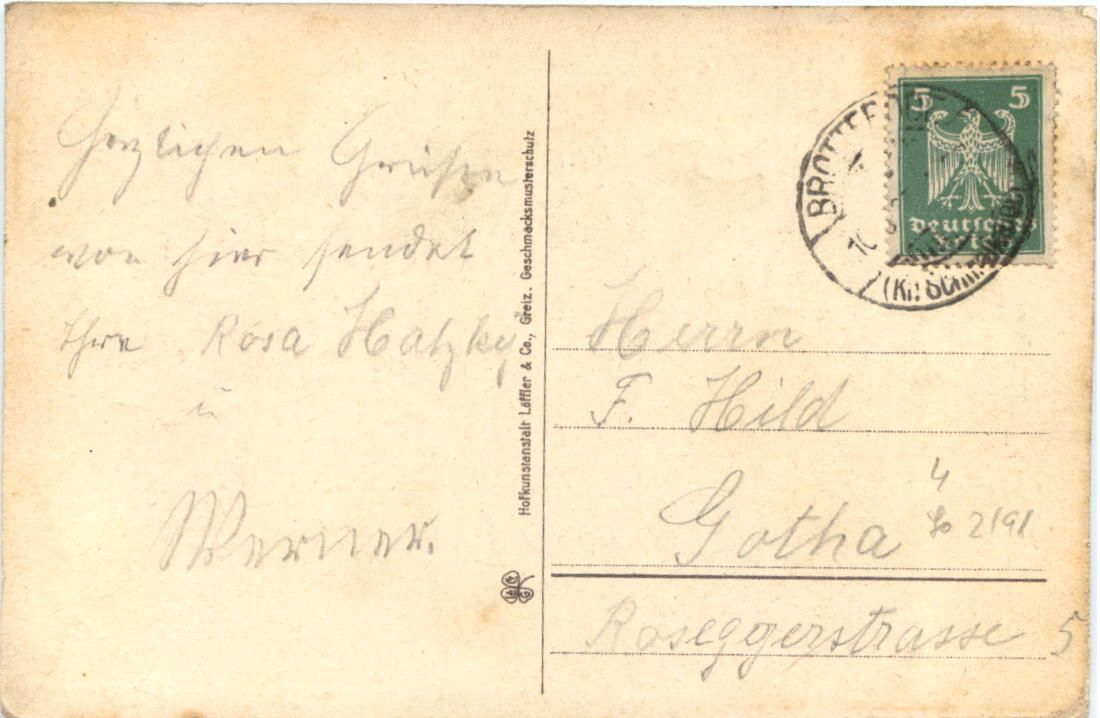 Herzlichen Grüßen
von hier sendet
Ihre Rosa Hatzky
u
Werner.
Hofkunstanstalt Löffler & Co., Greiz. Geschmacksmusterschutz
5 5
Deutsches
BROTTERODE
Herrn
F. Hild
Gotha
4
Roseggerstrasse 5